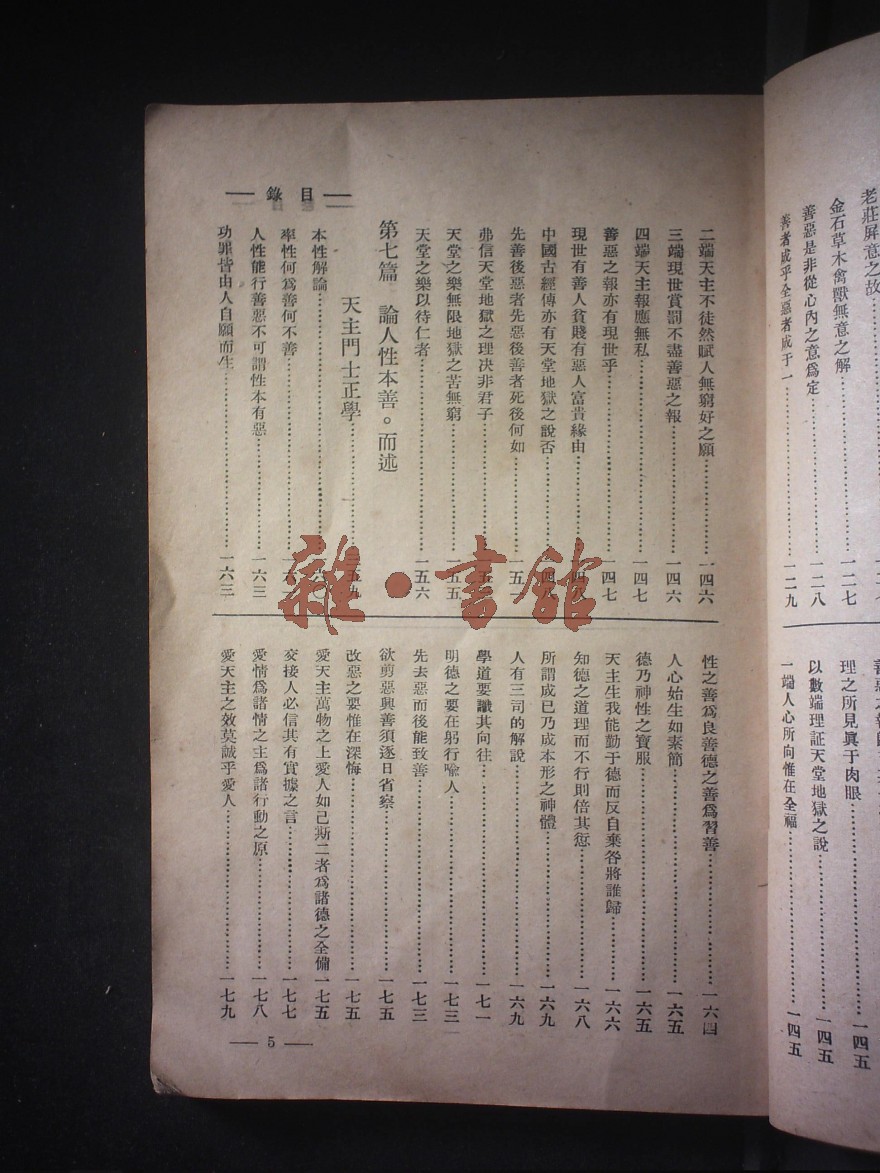 老莊屏意之故
金石草木禽獸無意之解……一二七
善惡是非從心內之意爲定……一二八
善者成乎全惡者成于一……一二九
理之所見眞于肉眼……一四五
以數端理証天堂地獄之說……一四五
一端人心所向惟在全福……一四五
目錄
二端天主不徒然賦人無窮好之願……一四六
三端現世賞罰不盡善惡之報……一四六
四端天主報應無私……一四七
善惡之報亦有現世乎……一四七
現世有善人貧賤有惡人富貴緣由……一四八
中國古經傳亦有天堂地獄之說否……一四九
先善後惡者先惡後善者死後何如……一五一
弗信天堂地獄之理決非君子……一五
天堂之樂無限地獄之苦無窮……一五五
天堂之樂以待仁者……一五六
第七篇 論人性本善。而述
天主門士正學……一五九
本性解論……一六
率性何爲善何不善……一六
人性能行善惡不可謂性本有惡……一六三
功罪皆由人自願而生……一六三
性之善爲良善德之善爲習善……一六四
人心始生如素簡……一六五
德乃神性之寶服……一六五
天主生我能勤于德而反自棄咎將誰歸……一六六
知德之道理而不行則倍其愆……一六八
所謂成已乃成本形之神體……一六九
人有三司的解說……一六九
學道要識其向往……一七一
明德之要在躬行喩人……一七三
先去惡而後能致善……一七三
欲剪惡興善須逐日省察……一七五
改惡之要惟在深悔……一七五
愛天主萬物之上愛人如己斯二者爲諸德之全備……一七五
交接人必信其有實據之言……一七七
愛情爲諸情之主爲諸行動之原……一七八
愛天主之效莫誠乎愛人……一七九
5
雜·書館